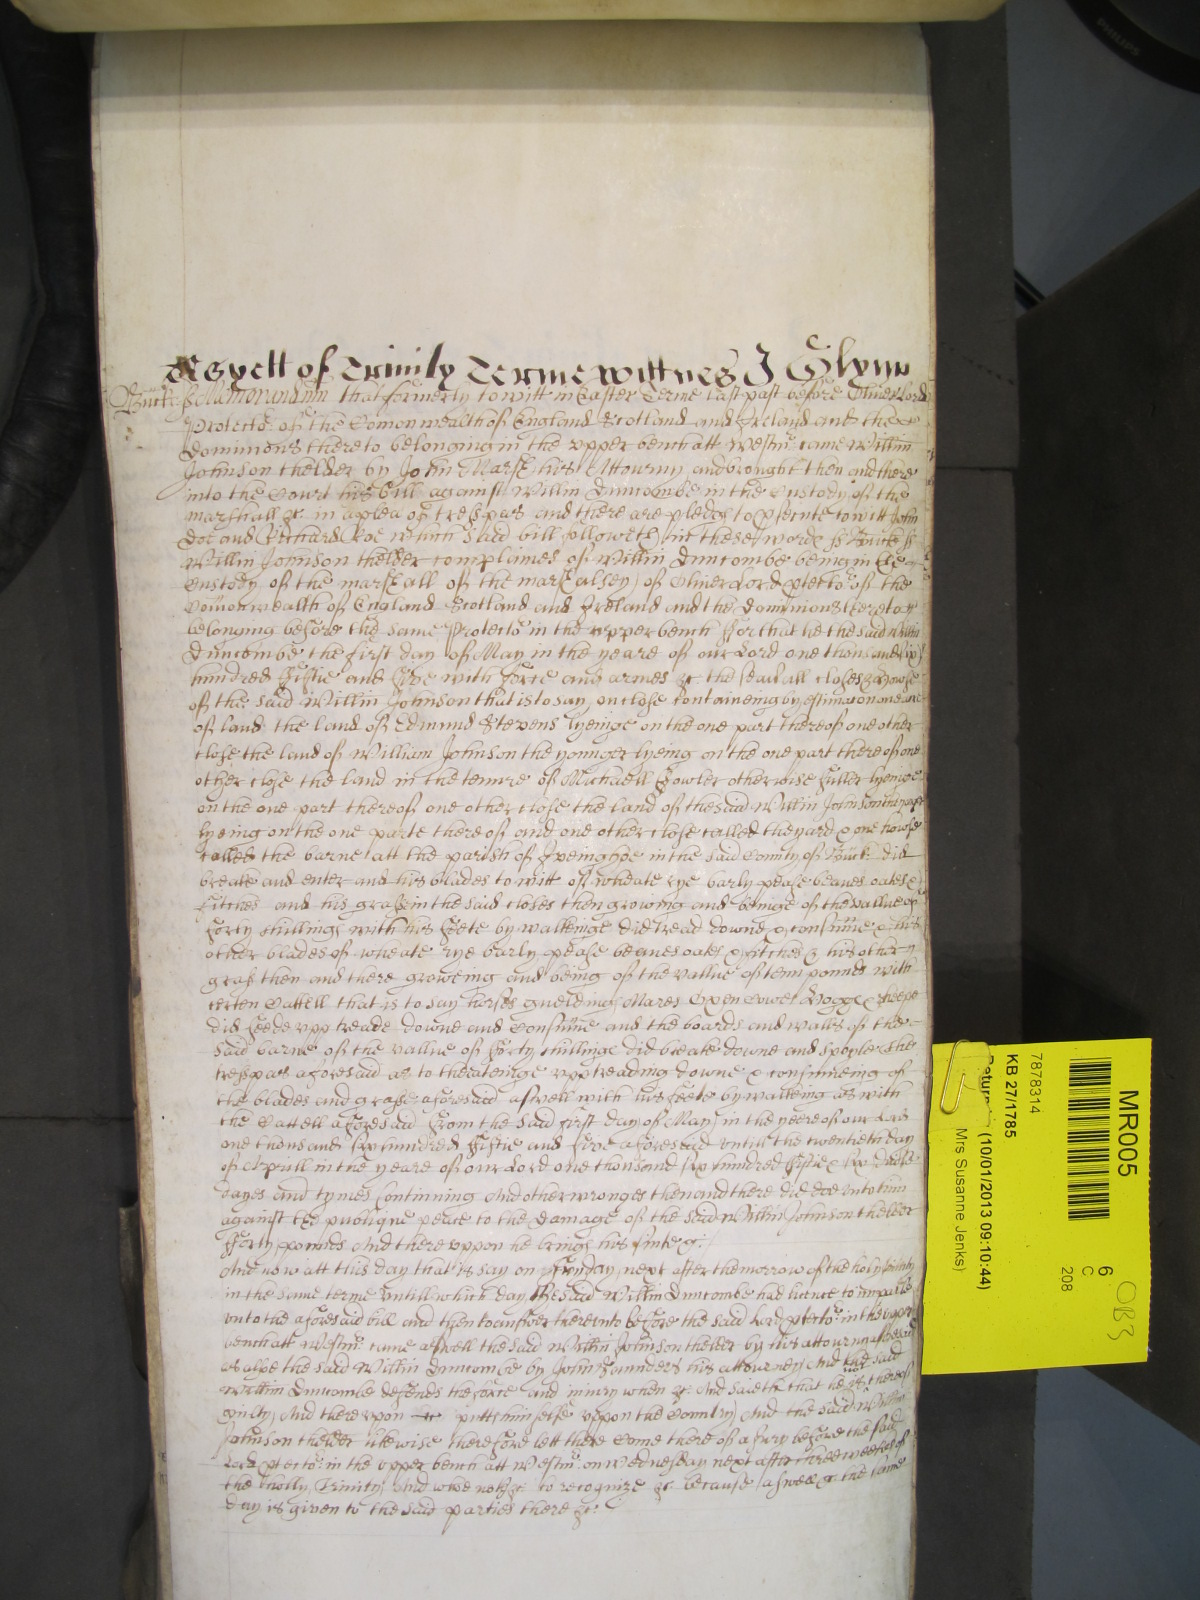 As yett of Trinity Terme wittnes J Glynn
Buck ss Memorandum that formerly to witt in Easter Terme last past before Oliver Lord
Protector of the Comonwealth of England Scotland and Ireland and the
dominions thereto belonging in the upper bench att Westm̄r came Willm
Johnson thelder by John Marsh his Attourny and brought then and there
into the Court his bill against Willm Duncombe in the Custody of the
marshall &c in a plea of trespas and there are pledges to prsecute to witt John
Doe and Richard Roe which said bill followeth in these words ss Buck ss
Willm Johnson thelder complaines of Willm Duncombe being in the
Custody of the marshall of the marshalsey of Oliver Lord Ptector of the
Comonwealth of England Scotland and Ireland and the Dominions thereto
belonging before the same Protector in the upper bench For that he the said Willm
Duncombe the first day of May in the yeare of our Lord one thousand six
hundred Fiftie and Five with Force and armes &c the severall closes & howse
of the said Willm Johnson that is to say on close conteineing by estimacon one acre
of land the land of Edmund Stevens lyeinge on the one part thereof one other
close the land of William Johnson the younger lyeing on the one part thereof one
other close the land in the tenure of Michaell Fowler otherwise Fuller lyeinge
on the one part thereof one other close the land of the said Willm Johnson the younger
lyeing on the one parte thereof and one other close called the yard & one howse
called the barne att the parish of Iveinghoe in the said County of Buck did
breake and enter and his blades to witt of wheate rye barly pease beanes oates &
Fitches and his grasse in the said closes then growing and beinge of the vallue of
Forty shillings with his Feete by walkeinge did tread downe & consume & his
other blades of wheate rye barly pease beanes oates & Fitches & his other
gras then and there groweing and being of the vallue of tenn pounds with
certen Cattell that is to say horses gueldings Mares Oxen Cowes Hogges & sheepe
did Feede upp treade downe and Consume and the boards and walls of the
said barne of the vallue of Forty shillings did breake downe and spoyle the
trespas aforesaid as to the eateinge upp treading downe & consumeing of
the blades and grasse aforesaid aswell with his Feete by walking as with
the Cattell aforesaid From the said First day of May in the yeere of our Lord
one thousand six hundred Fiftie and Five aforesaid untill the twentieth day
of Aprill in the yeare of our Lord one thousand six hundred Fiftie & six divse
dayes and tymes continuing And other wronges then and there did doe unto him
against the publique peace to the damage of the said Willm Johnson thelder
Forty pounds And thereuppon he brings his suite &c
And now att this day that is say on Fryday next after the morrow of the holy Trinity
in the same terme untill which day the said Willm Duncombe had licence to imparle
unto the aforesaid bill and then to answer thereunto before the said Lord Ptector in the upper
bench att Westm̄r came aswell the said Willm Johnson thelder by his attourny aforesaid
as alsoe the said Willm Duncombe by John Saunders his attourney And the said
Willm Duncombe defends the Force and iniury when &c And saieth that he is not thereof
guilty And thereupon putts himselfe uppon the Country And the said Willm
Johnson thelder likewise therefore lett there Come thereof a Jury before the said
Lord Ptector in the upper bench att Westm̄r on Wednesday next after three weekes of
the holly Trinity And whoe neither &c to recognize &c because aswell &c the same
day is given to the said parties there &c
MR005
7878314
KB 27/1785
Return (10/01/2013 09:10:44)
Mrs Susanne Jenks)
6
C
208
OB3
PHILIPS